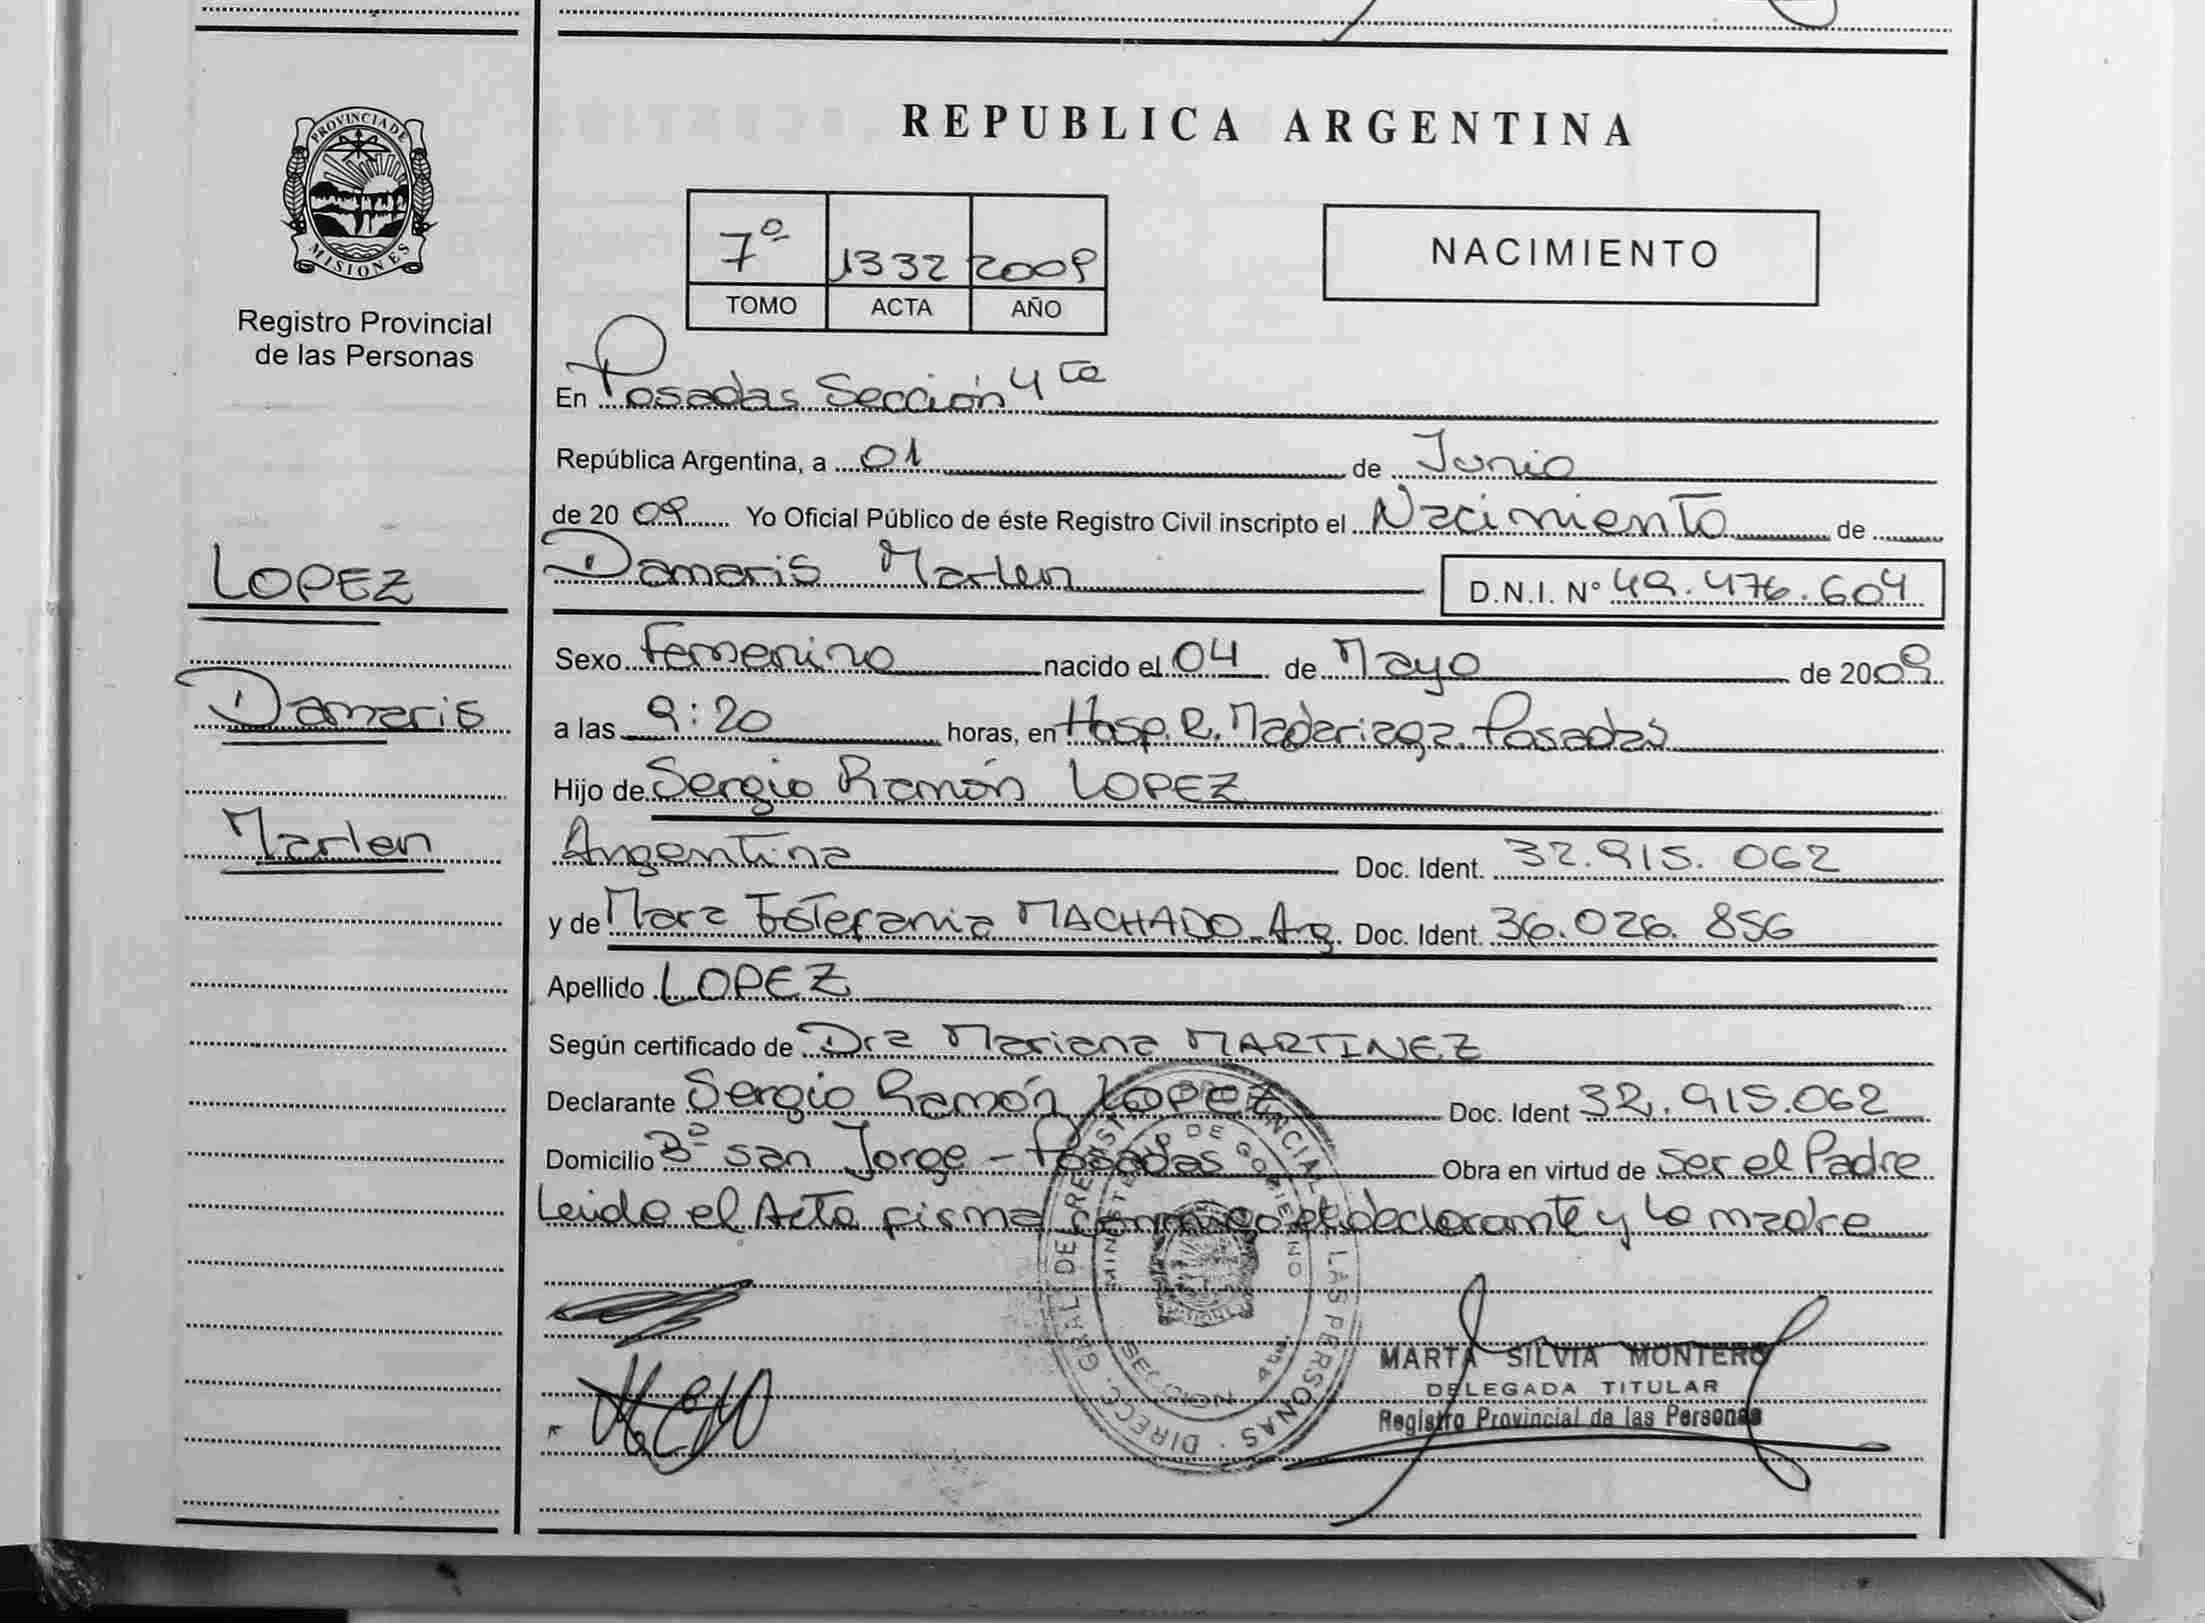 PROVINCIA DE
MISIONES
Registro Provincial
de las Personas
LOPEZ
Damaris
Marlen
REPUBLICA ARGENTINA
7º 1332 2009
TOMO ACTA AÑO
NACIMIENTO
En Posadas Sección 4ta
República Argentina, a 01 de Junio
de 2009 Yo Oficial Público de éste Registro Civil inscripto el Nacimiento de
Damaris Marlen D.N.I. Nº 49.476.604
Sexo Femenino nacido el 04 de Mayo de 2009
a las 9:20 horas, en Hosp. R. Madariaga. Posadas
Hijo de Sergio Ramón LOPEZ
Argentina Doc. Ident. 32.915.062
y de Mara Estefania MACHADO Arg. Doc. Ident. 36.026.856
Apellido LOPEZ
Según certificado de Dra Mariana MARTINEZ
Declarante Sergio Ramón LOPEZ Doc. Ident 32.915.062
Domicilio Bº San Jorge - Posadas Obra en virtud de ser el Padre
Leido el Acta firma conmigo el declarante y la madre
DIRECC. GRAL. DE REGISTRO PROVINCIAL DE LAS PERSONAS
MINISTERIO DE GOBIERNO
MARTA SILVIA MONTERO
DELEGADA TITULAR
Registro Provincial de las Personas